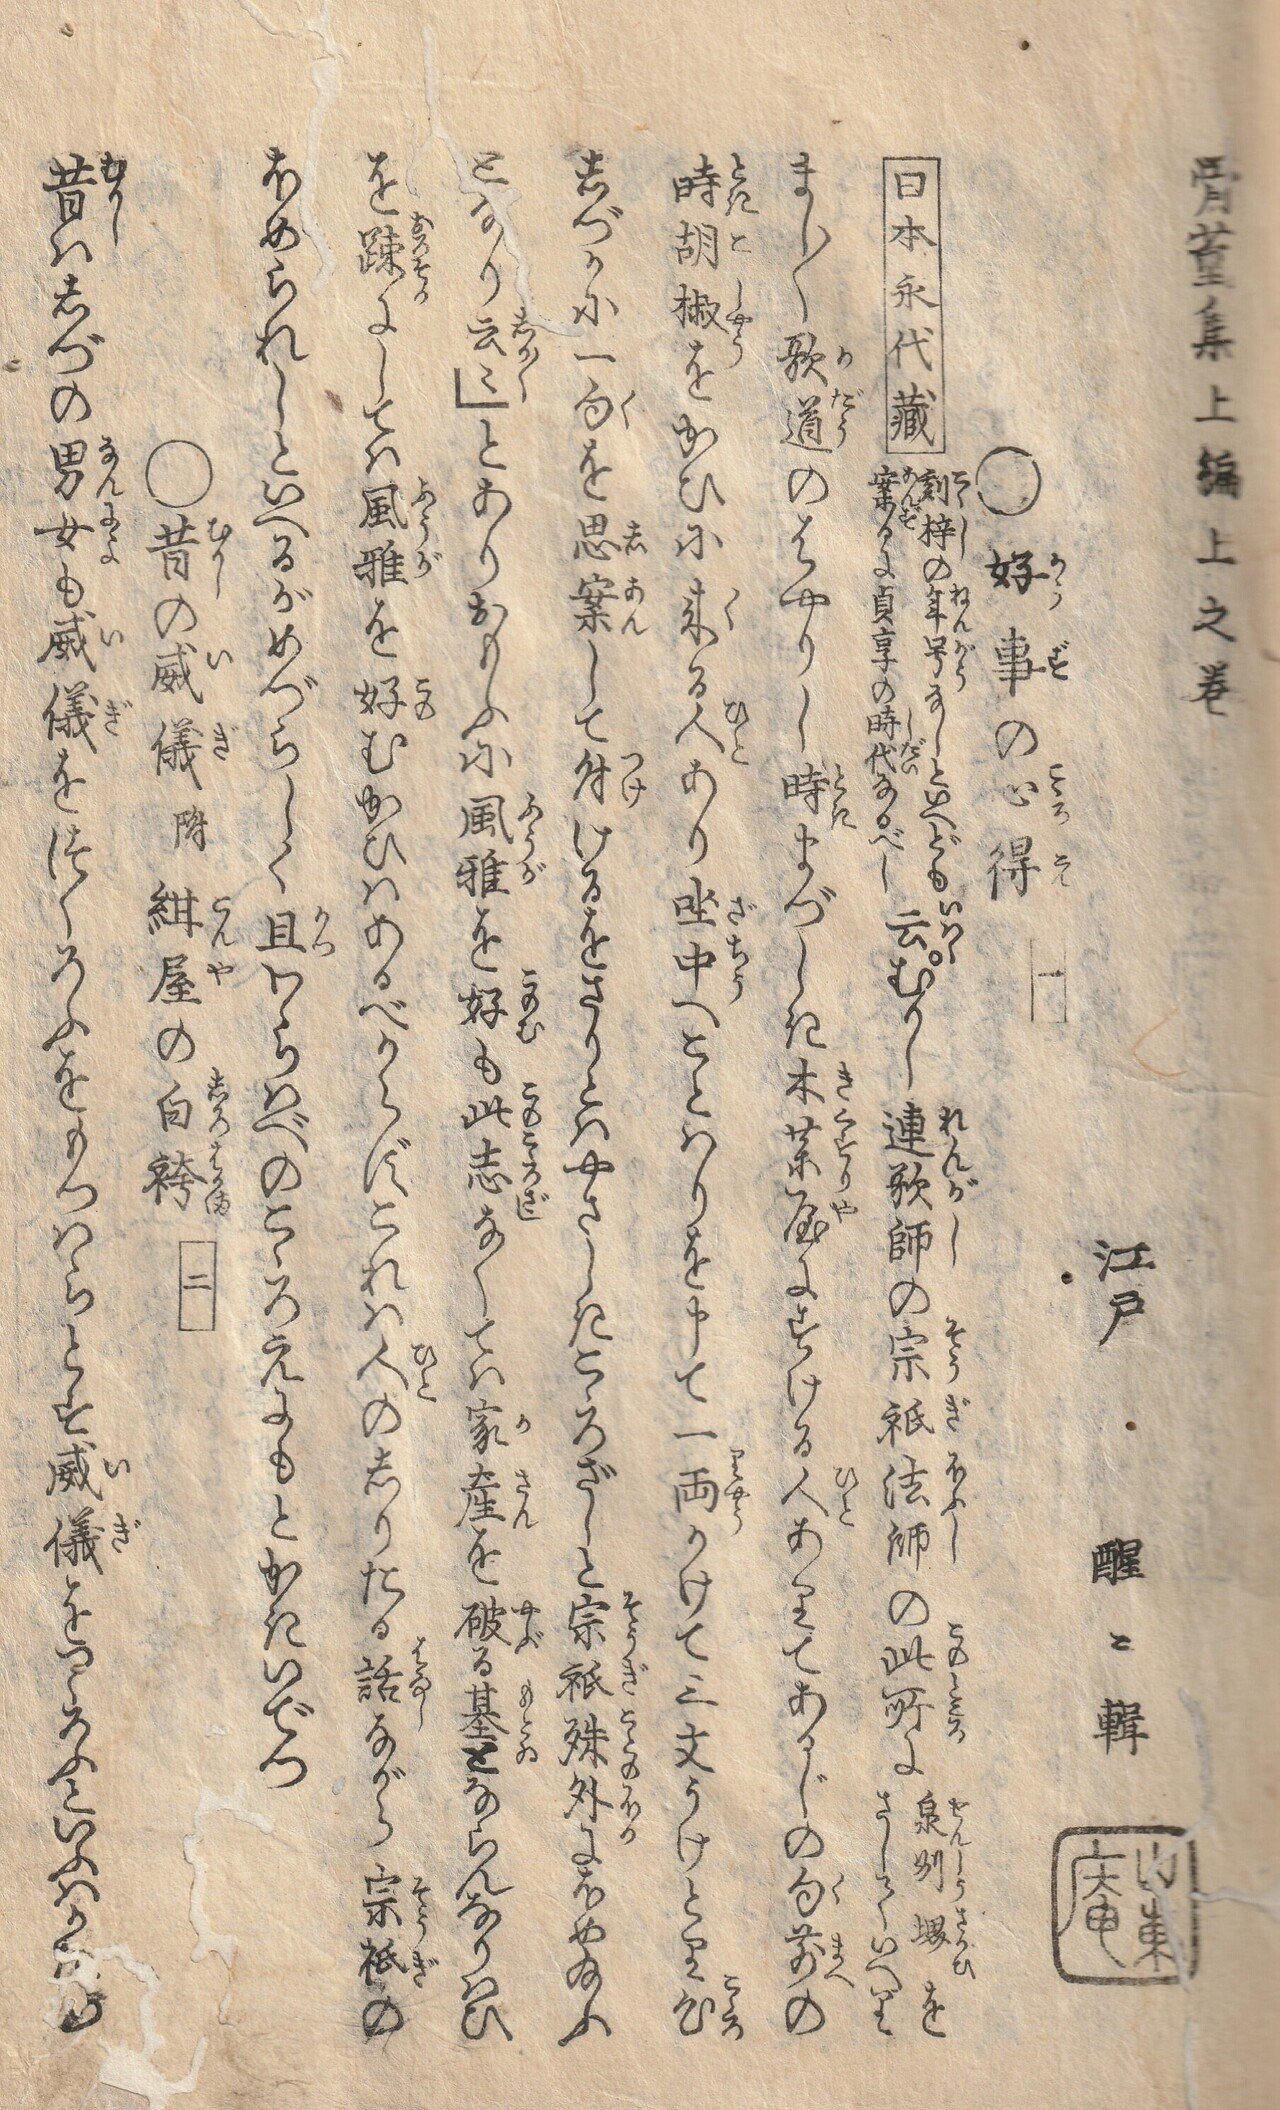 骨董集上編上之巻
江戸 醒々輯
山東庵
○好事の心得 一
かうず こゝろえ
日本永代蔵 刻梓の年号なしといへども
案るに貞享の時代なるべし 云。むかし連歌師の宗祇法師の此所に 泉州堺を
さしていへり
まし〳〵歌道のはやりし時まづしき木薬屋にすける人ありてあるじの句前の
時胡椒をかひに来る人あり座中へことはりを申て一両かけて三文うけとり心
しづかに一句を思案して付けるをさりとはやさしきこゝろざしと宗祇殊外にほめ給ふ
となり云々」とありおもふに風雅を好も此志なくては家産を破る基とならんなりはひ
を疎にしては風雅を好むかひはあるべからずこれは人のしりたる話ながら宗祇の
ほめられしといへるがめづらしく且わらはべのこゝろえにもとかきいでつ
○昔の威儀 附 紺屋の白袴 二
昔はしづの男女も威儀をつくろふをもつはらとす威儀をつくろふといふは